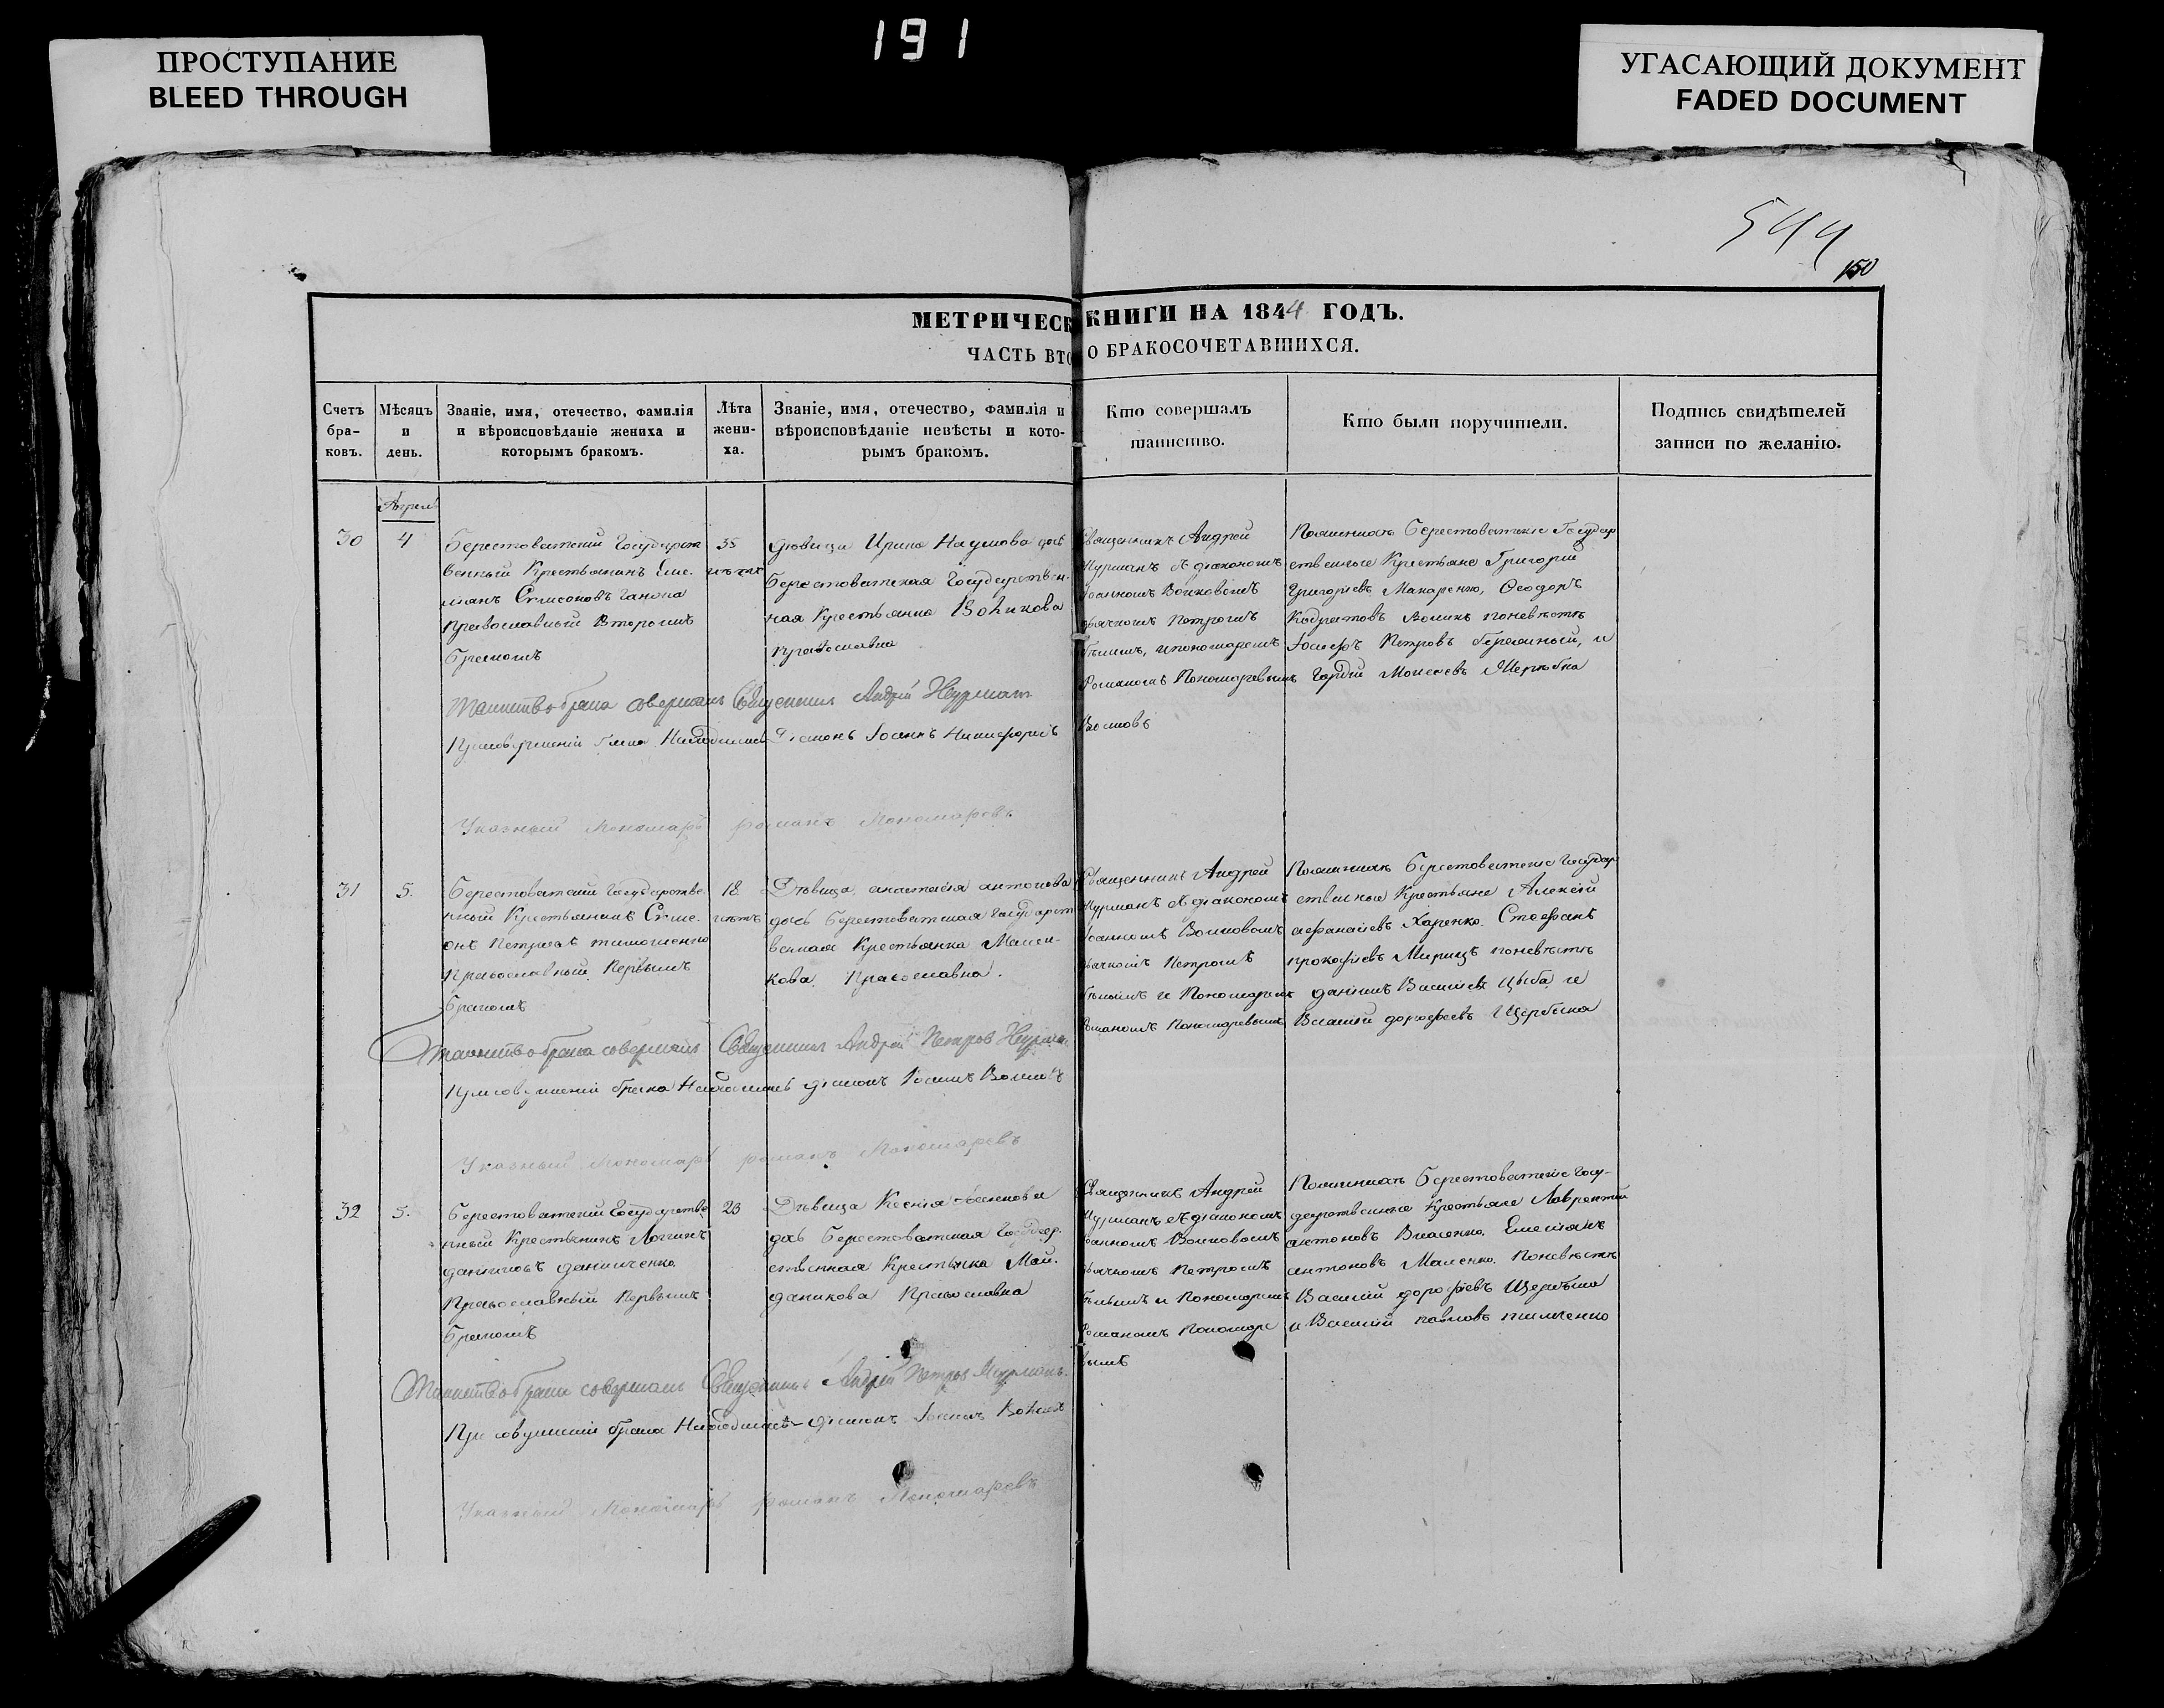 191
ПРОСТУПАНИЕ
BLEED THROUGH
УГАСАЮЩИЙ ДОКУМЕНТ
FADED DOCUMENT
544
150
МЕТРИЧЕСК КНИГИ НА 1844 ГОДЪ.
ЧАСТЬ ВТО О БРАКОСОЧЕТАВШИХСЯ.
Счетъ бра- ковъ.
Мѣсяцъ и день.
Званіе, имя, отечество, фамилія и вѣроисповѣданіе жениха и которымъ бракомъ.
Лѣта жени- ха.
Званіе, имя, отечество, фамилія и вѣроисповѣданіе невѣсты и кото- рымъ бракомъ.
Кто совершалъ таинство.
Кто были поручители.
Подпись свидѣтелей записи по желанію.
30
4
Берестоватский Государст
венный Крестьянинъ Еме-
лианъ Симеоновъ
Православный Вторымъ
бракомъ
35
дѣвица Ирина Наумова дочь
Берестоватская Государствен-
ная Крестьянка Воликова
Православна
Священникъ Андрей
Нурманъ съ діакономъ
Іоанномъ Волковымъ
дьячкомъ Петромъ
Бѣлымъ, и пономаремъ
Романомъ Пономаревымъ
Берестоватские Государ
ственные Крестьяне Григорий
Григориевъ Макаренко, Феодоръ
поневѣстѣ
Іосифъ Петровъ бережный, и
Гордѣй Моисеевъ Щербина
Таинство брака совершалъ Священникъ Андрей Нурманъ
При совершении брака Находился Діаконъ Іоаннъ Никифоровъ Волковъ
Указный Пономарь романъ Пономаревъ
31
5.
Берестоватский Государстве-
нный Крестьянинъ Симе-
онъ Петровъ тимошенко
Православный Первымъ
бракомъ
18
лѣтъ
Дѣвица анастасія антонова
дочь Берестоватская Государст
венная Крестьянка
Православна.
Священникъ Андрей
Нурманъ съ діакономъ
Іоанномъ Волковымъ
дьячкомъ Петромъ
Бѣлымъ и Пономаремъ
Романомъ Пономаревымъ
Берестоватские Государ
ственные Крестьяне Алексѣй
афанасиевъ Харенко. Стефанъ
прокофиевъ поневѣстѣ
даниилъ Василиевъ Цыба и
Василий дорофеевъ Щербина
Таинство брака совершалъ Священникъ Андрей Петров Нурман
При совершении брака Находился діаконъ Іоаннъ Волковъ
Указный Пономарь романъ Пономаревъ
32
5.
Берестоватский Государстве
нный Крестьянинъ Логгинъ
данииловъ данилченко
Православный Первымъ
бракомъ
23
Дѣвица Ксения
дочь Берестоватская Государ-
ственная Крестьянка Май-
даникова Православна
Священникъ Андрей
Нурманъ съ діакономъ
Іоанномъ Волковымъ
дьячкомъ Петромъ
Бѣлымъ и Пономаремъ
Романомъ Пономаре
вымъ
Берестоватские Госу-
дарственные Крестьяне Лаврентий
антоновъ Власенко, Емелианъ
антоновъ Маленко. Поневѣстѣ
Василий дорофиевъ Щербина
и Василий павловъ тимченко
Таинство брака совершалъ Священникъ Андрей Петров Нурманъ.
При совершении брака Находился діаконъ Іоаннъ Волковъ
Указный Пономарь романъ Пономаревъ